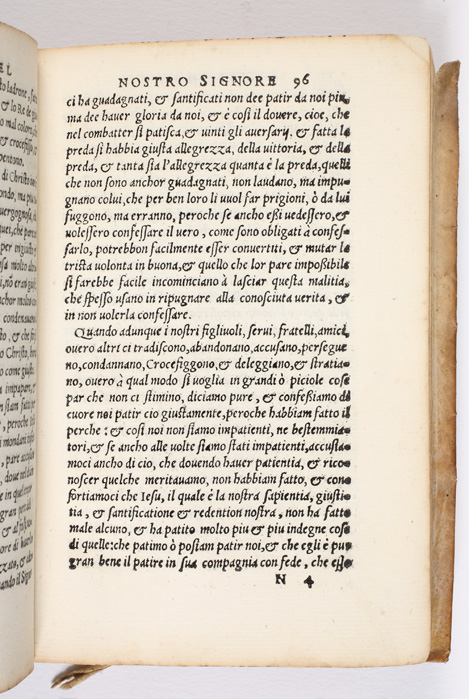 NOSTRO SIGNORE 96
ci ha guadagnati, & santificati non dee patir da noi piu,
ma dee haver gloria da noi, & è cosi il dovere, cioe, che
nel combatter si patisca, & vinti gli aversarij, & fatta la
preda si habbia giusta allegrezza, della vittoria, & della
preda, & tanta sia l'allegrezza quanta è la preda, quelli
che non sono anchor guadagnati, non laudano, ma impu-
gnano colui, che per ben loro li vuol far prigioni, ò da lui
fuggono, ma erranno, peroche se ancho eßi vedessero, &
volessero confessare il vero, come sono obligati à confes-
sarlo, potrebbon facilmente esser convertiti, & mutar la
trista volonta in buona, & quello che lor pare impoßibile
si farebbe facile incominciano à lasciar questa malitia,
che spesso usano in ripugnare alla conosciuta verita, &
in non volerla confessare.
Quando adunque i nostri figlivoli, servi, fratelli, amici,
overo altri ci tradiscono, abandonano, accusano, persegue
no, condannano, Crocefiggono, & deleggiano, & stratia-
no, overo à qual modo si voglia in grandi ò piciole cose
par che non ci stimino, diciamo pure, & confeßiamo di
cuore noi patir cio giustamente, peroche habbiam fatto il
perche: & cosi noi non siamo impatienti, ne bestemmia-
tori, & se ancho alle volte siamo stati impatienti, accusia-
moci ancho di cio, che dovendo haver patientia, & rico-
noscer quelche meritavamo, non habbiam fatto, & con
fortiamoci che Iesu, il quale è la nostra sapientia, giusti-
tia, & santificatione & redention nostra, non ha fatto
male alcuno, & ha patito molto piu & piu indegne cose
di quelle: che patimo ò possiam patir noi, & che egli è pur
gran bene il patire in sua compagnia con fede, che esso
N 4